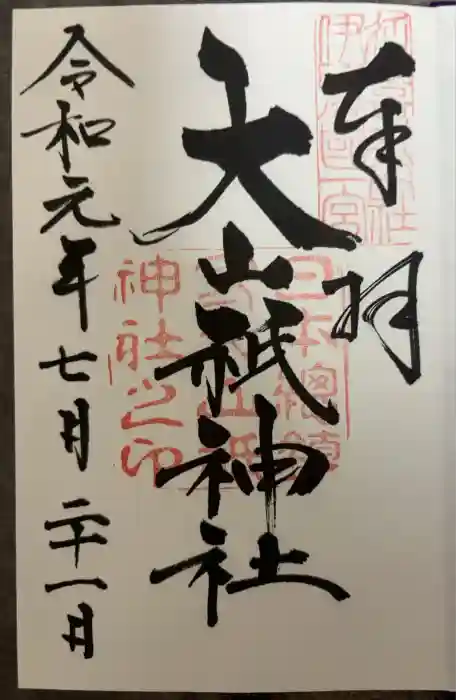 奉拝
大山祇神社
令和元年七月二十一日
日本總鎮
守大山祇
神社之印